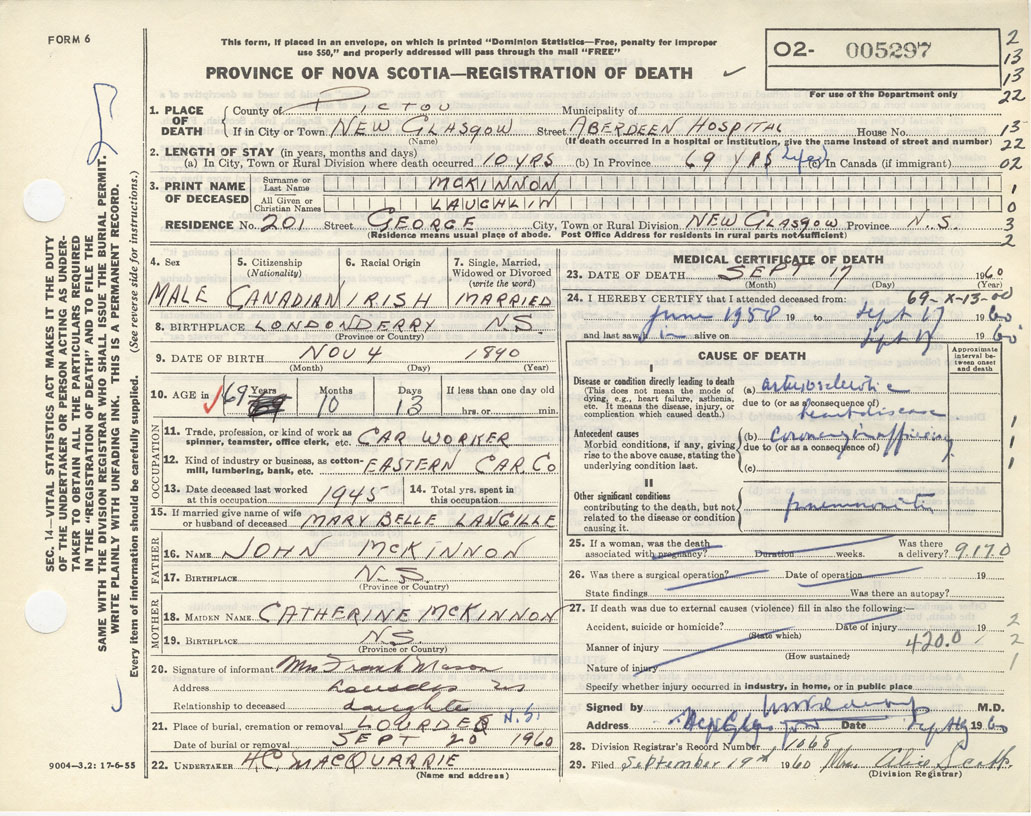 FORM 6
This form, if placed in an envelope, on which is printed "Dominion Statistics—Free, penalty for improper
use $50," and properly addressed will pass through the mail "FREE"
PROVINCE OF NOVA SCOTIA—REGISTRATION OF DEATH
O2- 005297
For use of the Department only
2
13
13
22
13
22
02
1
0
3
2
1. PLACE OF DEATH
County of PICTOU Municipality of
If in City or Town NEW GLASGOW Street ABERDEEN HOSPITAL House No.
(Name) (If death occurred in a hospital or institution, give the name instead of street and number)
2. LENGTH OF STAY (in years, months and days)
(a) In City, Town or Rural Division where death occurred 10 YRS (b) In Province 69 YRS (life) (c) In Canada (if immigrant)
3. PRINT NAME OF DECEASED
Surname or Last Name MCKINNON
All Given or Christian Names LAUGHLIN
RESIDENCE No. 201 Street GEORGE City, Town or Rural Division NEW GLASGOW Province N.S.
(Residence means usual place of abode. Post Office Address for residents in rural parts not sufficient)
4. Sex
MALE
5. Citizenship
(Nationality)
CANADIAN
6. Racial Origin
IRISH
7. Single, Married,
Widowed or Divorced
(write the word)
MARRIED
8. BIRTHPLACE LONDONDERRY N.S.
(Province or Country)
9. DATE OF BIRTH NOV 4 1890
(Month) (Day) (Year)
10. AGE in 69 Years 10 Months 13 Days If less than one day old
hrs. or min.
OCCUPATION
11. Trade, profession, or kind of work as
spinner, teamster, office clerk, etc. CAR WORKER
12. Kind of industry or business, as cotton-
mill, lumbering, bank, etc. EASTERN CAR. CO
13. Date deceased last worked
at this occupation 1945
14. Total yrs. spent in
this occupation
15. If married give name of wife
or husband of deceased MARY BELLE LANGILLE
FATHER
16. NAME JOHN MCKINNON
17. BIRTHPLACE N.S.
(Province or Country)
MOTHER
18. MAIDEN NAME CATHERINE MCKINNON
19. BIRTHPLACE N.S.
(Province or Country)
20. Signature of informant Mrs Frank Mason
Address Lourdes NS
Relationship to deceased daughter
21. Place of burial, cremation or removal LOURDES N.S.
Date of burial or removal SEPT 20 1960
22. UNDERTAKER H.C. MACQUARRIE
(Name and address)
MEDICAL CERTIFICATE OF DEATH
23. DATE OF DEATH SEPT 17 1960
(Month) (Day) (Year)
69-X-13-00
24. I HEREBY CERTIFY that I attended deceased from:
June 1958 19 to Sept 17 1960
and last saw him alive on Sept 17 1960
CAUSE OF DEATH
Approximate
interval be-
tween onset
and death
I
Disease or condition directly leading to death
(This does not mean the mode of
dying, e.g., heart failure, asthenia,
etc. It means the disease, injury, or
complication which caused death.)
(a) arteriosclerotic
due to (or as consequence of)
heart disease
Antecedent causes
Morbid conditions, if any, giving
rise to the above cause, stating the
underlying condition last.
(b) coronary insufficiency
due to (or as a consequence of)
(c)
1
1
1
II
Other significant conditions
contributing to the death, but not
related to the disease or condition
causing it.
pneumonitis
25. If a woman, was the death
associated with pregnancy? Duration weeks. Was there
a delivery? 9.17.0
26. Was there a surgical operation? Date of operation 19
State findings Was there an autopsy?
27. If death was due to external causes (violence) fill in also the following:—
Accident, suicide or homicide? Date of injury 19
(State which)
Manner of injury 420.0
(How sustained)
Nature of injury
2
2
1
Specify whether injury occurred in industry, in home, or in public place
Signed by M.D.
Address New Glasgow Date 1960
28. Division Registrar's Record Number 1068
29. Filed September 19th 1960 Mrs Alice Scott.
(Division Registrar)
SEC. 14—VITAL STATISTICS ACT MAKES IT THE DUTY
OF THE UNDERTAKER OR PERSON ACTING AS UNDER-
TAKER TO OBTAIN ALL THE PARTICULARS REQUIRED
IN THE "REGISTRATION OF DEATH" AND TO FILE THE
SAME WITH THE DIVISION REGISTRAR WHO SHALL ISSUE THE BURIAL PERMIT.
WRITE PLAINLY WITH UNFADING INK. THIS IS A PERMANENT RECORD.
Every item of information should be carefully supplied. (See reverse side for instructions.)
9004-3.2: 17-6-55